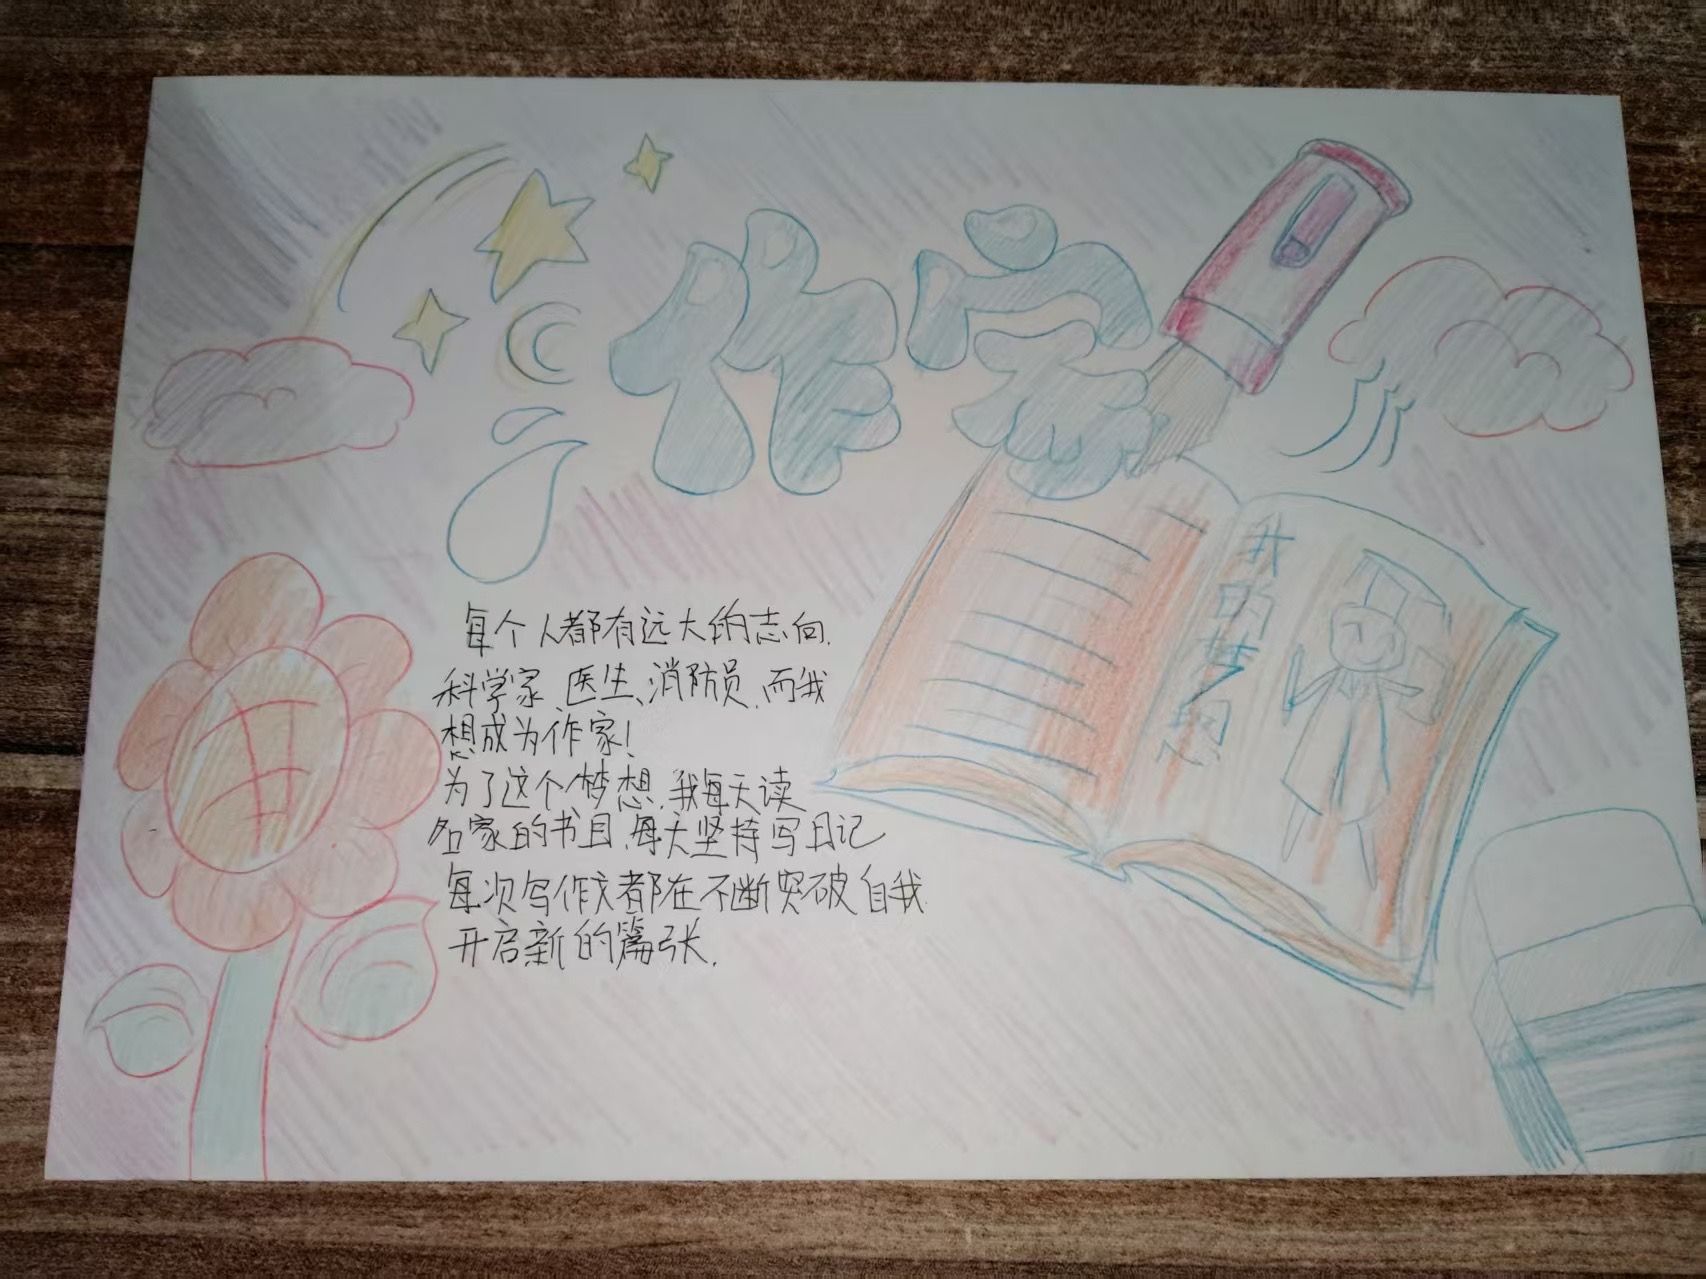 作家
我的梦想
每个人都有远大的志向.
科学家、医生、消防员,而我
想成为作家!
为了这个梦想,我每天读
名家的书目,每天坚持写日记
每次写作文都在不断突破自我
开启新的篇张.